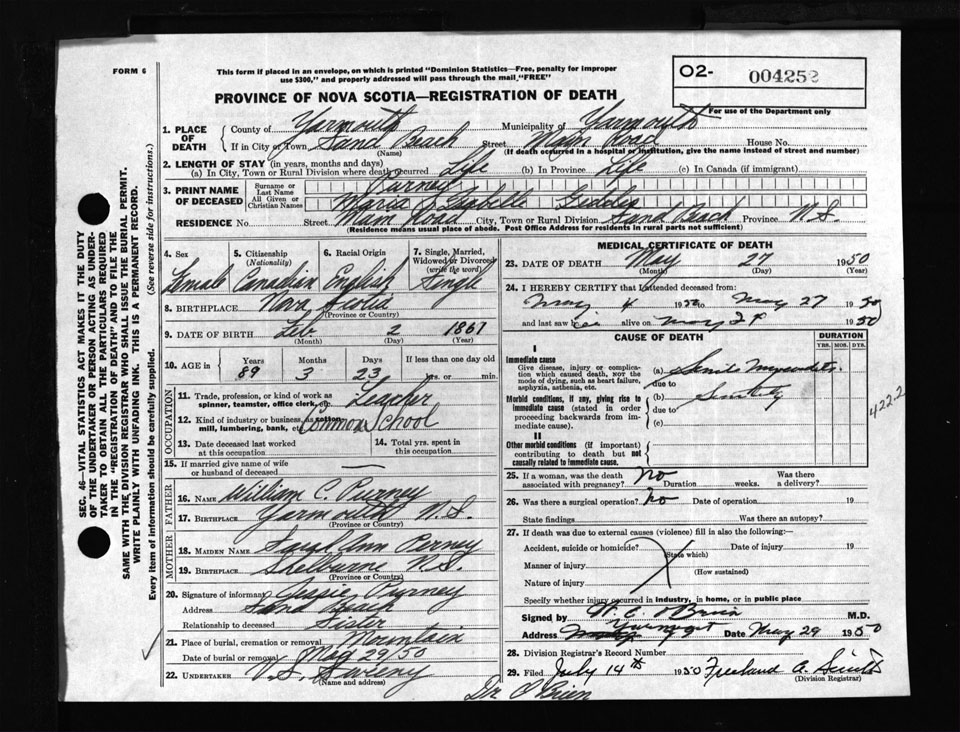 FORM 6
This form if placed in an envelope, on which is printed "Dominion Statistics—Free, penalty for improper
use $300," and properly addressed will pass through the mail "FREE"
O2- 004252
For use of the Department only
PROVINCE OF NOVA SCOTIA—REGISTRATION OF DEATH
1. PLACE OF DEATH County of Yarmouth Municipality of Yarmouth
If in City or Town Sand Beach Street Main Road House No.
(Name) (If death occurred in a hospital or institution, give the name instead of street and number)
2. LENGTH OF STAY (in years, months and days)
(a) In City, Town or Rural Division where death occurred Life (b) In Province Life (c) In Canada (if immigrant)
3. PRINT NAME OF DECEASED Surname or Last Name Purney
All Given or Christian Names Maria Isabelle Geddes
RESIDENCE No. Street Main Road City, Town or Rural Division Sand Beach Province N.S.
(Residence means usual place of abode. Post Office Address for residents in rural parts not sufficient)
4. Sex Female
5. Citizenship (Nationality) Canadian
6. Racial Origin English
7. Single, Married, Widowed or Divorced (write the word) Single
8. BIRTHPLACE Nova Scotia
(Province or Country)
9. DATE OF BIRTH Feb 2 1861
(Month) (Day) (Year)
10. AGE in Years Months Days If less than one day old
89 3 23 hrs. or min.
OCCUPATION
11. Trade, profession, or kind of work as spinner, teamster, office clerk, etc. Teacher
12. Kind of industry or business, as cotton mill, lumbering, bank, etc. Common School
13. Date deceased last worked at this occupation
14. Total yrs. spent in this occupation
15. If married give name of wife or husband of deceased —
FATHER
16. NAME William C. Purney
17. BIRTHPLACE Yarmouth N.S.
(Province or Country)
MOTHER
18. MAIDEN NAME Sarah Ann Perney
19. BIRTHPLACE Shelburne N.S.
(Province or Country)
20. Signature of informant Jessie Purney
Address Sand Beach
Relationship to deceased Sister
21. Place of burial, cremation or removal Mountain
Date of burial or removal May 29/50
22. UNDERTAKER V.S. Sweeny
(Name and address)
MEDICAL CERTIFICATE OF DEATH
23. DATE OF DEATH May 27 1950
(Month) (Day) (Year)
24. I HEREBY CERTIFY that I attended deceased from:
May 4 1950 to May 27 1950
and last saw alive on May 1950
CAUSE OF DEATH DURATION
YRS. MOS. DYS.
I
Immediate cause
Give disease, injury or complication which caused death, NOT the mode of dying, such as heart failure, asphyxia, asthenia, etc.
(a) Senile Myocarditis
due to
Morbid conditions, if any, giving rise to immediate cause (stated in order proceeding backwards from immediate cause).
(b) Senility
due to
(c)
4222
II
Other morbid conditions (if important) contributing to death but not causally related to immediate cause.
25. If a woman, was the death associated with pregnancy? No Duration weeks. Was there a delivery?
26. Was there a surgical operation? No Date of operation 19
State findings Was there an autopsy?
27. If death was due to external causes (violence) fill in also the following:
Accident, suicide or homicide? Date of injury 19
(State which)
Manner of injury
(How sustained)
Nature of injury
Specify whether injury occurred in industry, in home, or in public place
Signed by W. C. O'Brien M.D.
Address Date May 29 1950
28. Division Registrar's Record Number
29. Filed July 14th 1950 Freeland A. Smith
(Division Registrar)
Dr O'Brien
SEC. 46—VITAL STATISTICS ACT MAKES IT THE DUTY
OF THE UNDERTAKER OR PERSON ACTING AS UNDER-
TAKER TO OBTAIN ALL THE PARTICULARS REQUIRED
IN THE "REGISTRATION OF DEATH" AND TO FILE THE
SAME WITH THE DIVISION REGISTRAR WHO SHALL ISSUE THE BURIAL PERMIT.
WRITE PLAINLY WITH UNFADING INK. THIS IS A PERMANENT RECORD.
Every item of information should be carefully supplied. (See reverse side for instructions.)